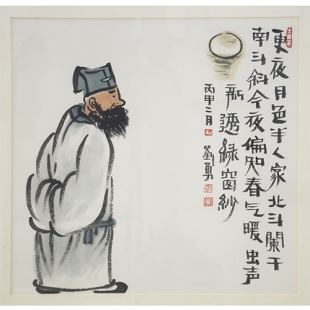 更夜月色半人家北斗闌干
南斗斜今夜偏知春气暖虫声
新透綠窗紗
丙申二月
劉勇